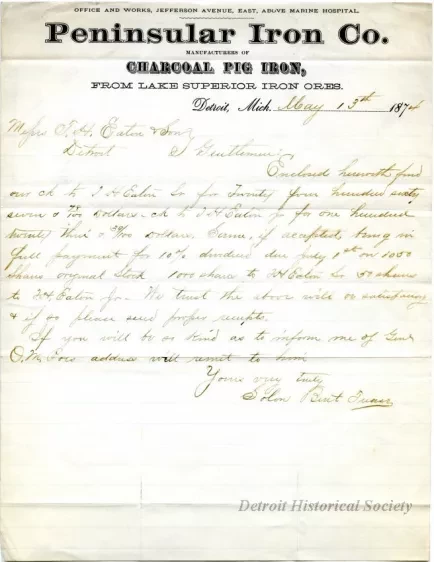 OFFICE AND WORKS, JEFFERSON AVENUE, EAST, ABOVE MARINE HOSPITAL.
Peninsular Iron Co.
MANUFACTURERS OF
CHARCOAL PIG IRON,
FROM LAKE SUPERIOR IRON ORES.
Detroit, Mich. May 13th 1874
Messrs T. H. Eaton & Son
Detroit } Gentlemen
Enclosed herewith find
our ck to T H Eaton Sr for Twenty four hundred sixty
seven & Dollars. ck to T H Eaton Jr for one hundred
twenty three & Dollars. Same, if accepted, being in
full payment for 10% dividend due July 1st on 1050
shares original Stock 1000 shares to TH Eaton Sr 50 shares
to TH Eaton Jr. We trust the above will be satisfactory
& if so please send proper receipts.
If you will be so kind as to inform me of Genl
O. M. Poes address will remit to him
Yours very truly
Solon Burt Treasr
Detroit Historical Society